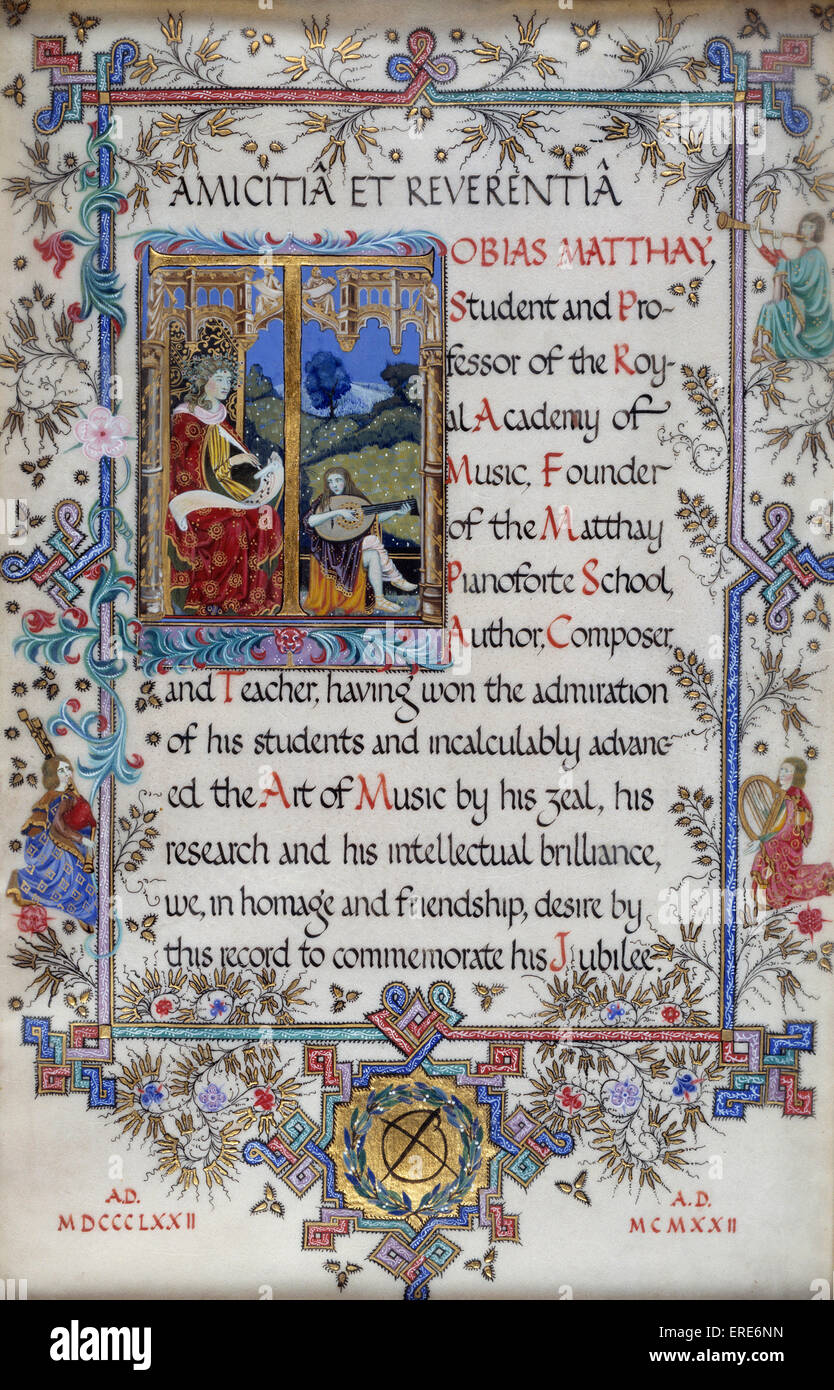 AMICITIÂ ET REVERENTIÂ
TOBIAS MATTHAY,
Student and Pro-
fessor of the Roy-
al Academy of
Music, Founder
of the Matthay
Pianoforte School,
Author, Composer,
and Teacher, having won the admiration
of his students and incalculably advanc-
ed the Art of Music by his zeal, his
research and his intellectual brilliance,
we, in homage and friendship, desire by
this record to commemorate his Jubilee.
A.D.
MDCCCLXXII
A.D.
MCMXXII
alamy
alamy stock photo
ERE6NN
www.alamy.com